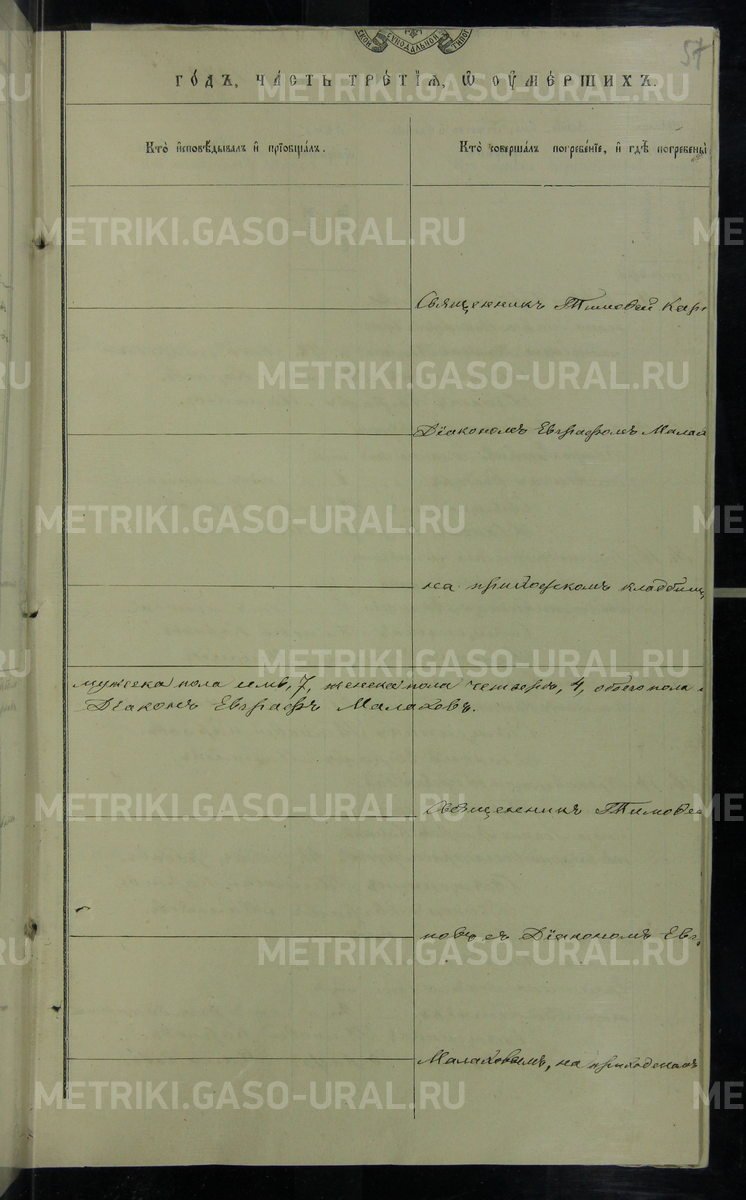 57
го́дъ, ча́сть тре́тїѧ, ѡ҆ ᲂу҆ме́ршихъ.
Кто̀ и҆сповѣ́дывалъ и҆ прїѡбща́лъ.
Кто̀ соверша́лъ погребе́нїе, и҆ гдѣ̀ погребены̀
Священникъ Тимовей Кар
Діакономъ Евграфомъ Мала
на приходскомъ кладбищ
мужеска пола семь, 7, женска пола четыре, 4, обоего пола
Діаконъ Евграфъ Малаховъ.
Священникъ Тимовей
повъ съ Діакономъ Евг
Малаховымъ, на приходскомъ
METRIKI.GASO-URAL.RU